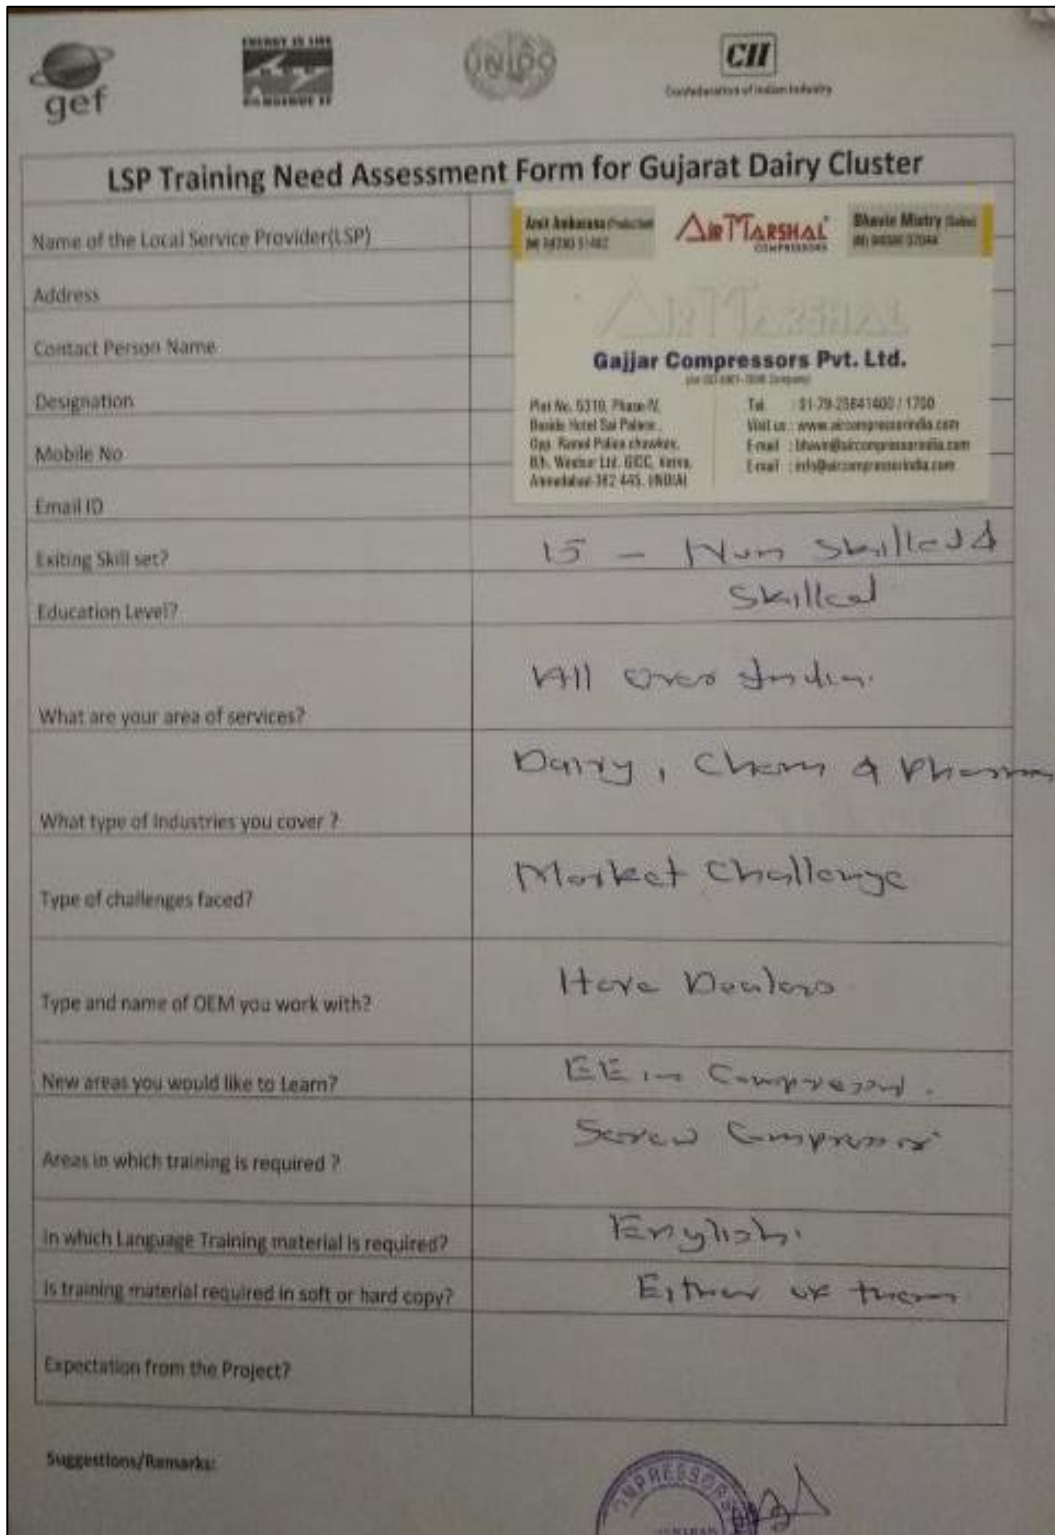 gef
ENERGY IS LIFE
UNIDO
CII
Confederation of Indian Industry
LSP Training Need Assessment Form for Gujarat Dairy Cluster
Name of the Local Service Provider(LSP)
Address
Contact Person Name
Designation
Mobile No
Email ID
Amit
AIR MARSHAL
COMPRESSORS
Bhavin Mistry (Sales)
AIR MARSHAL
Gajjar Compressors Pvt. Ltd.
Plot No. 5310, Phase-IV,
Beside Hotel Sai Palace,
Opp. Ramol Police
B/h. Ltd. GIDC, Vatva,
Ahmedabad-382 445. (INDIA)
Tel. : 91-79-25841400 / 1700
Visit us : www.aircompressorindia.com
E-mail : bhavin@aircompressorindia.com
E-mail : info@aircompressorindia.com
Exiting Skill set?
15 - Non Skilled &
Skilled
Education Level?
What are your area of services?
All Over India.
What type of Industries you cover ?
Dairy, Chem & Pharma
Type of challenges faced?
Market Challenge
Type and name of OEM you work with?
Have Dealers
New areas you would like to Learn?
EE in
Areas in which training is required ?
Screw Compressor
In which Language Training material is required?
English.
Is training material required in soft or hard copy?
Either of them
Expectation from the Project?
Suggestions/Remarks: